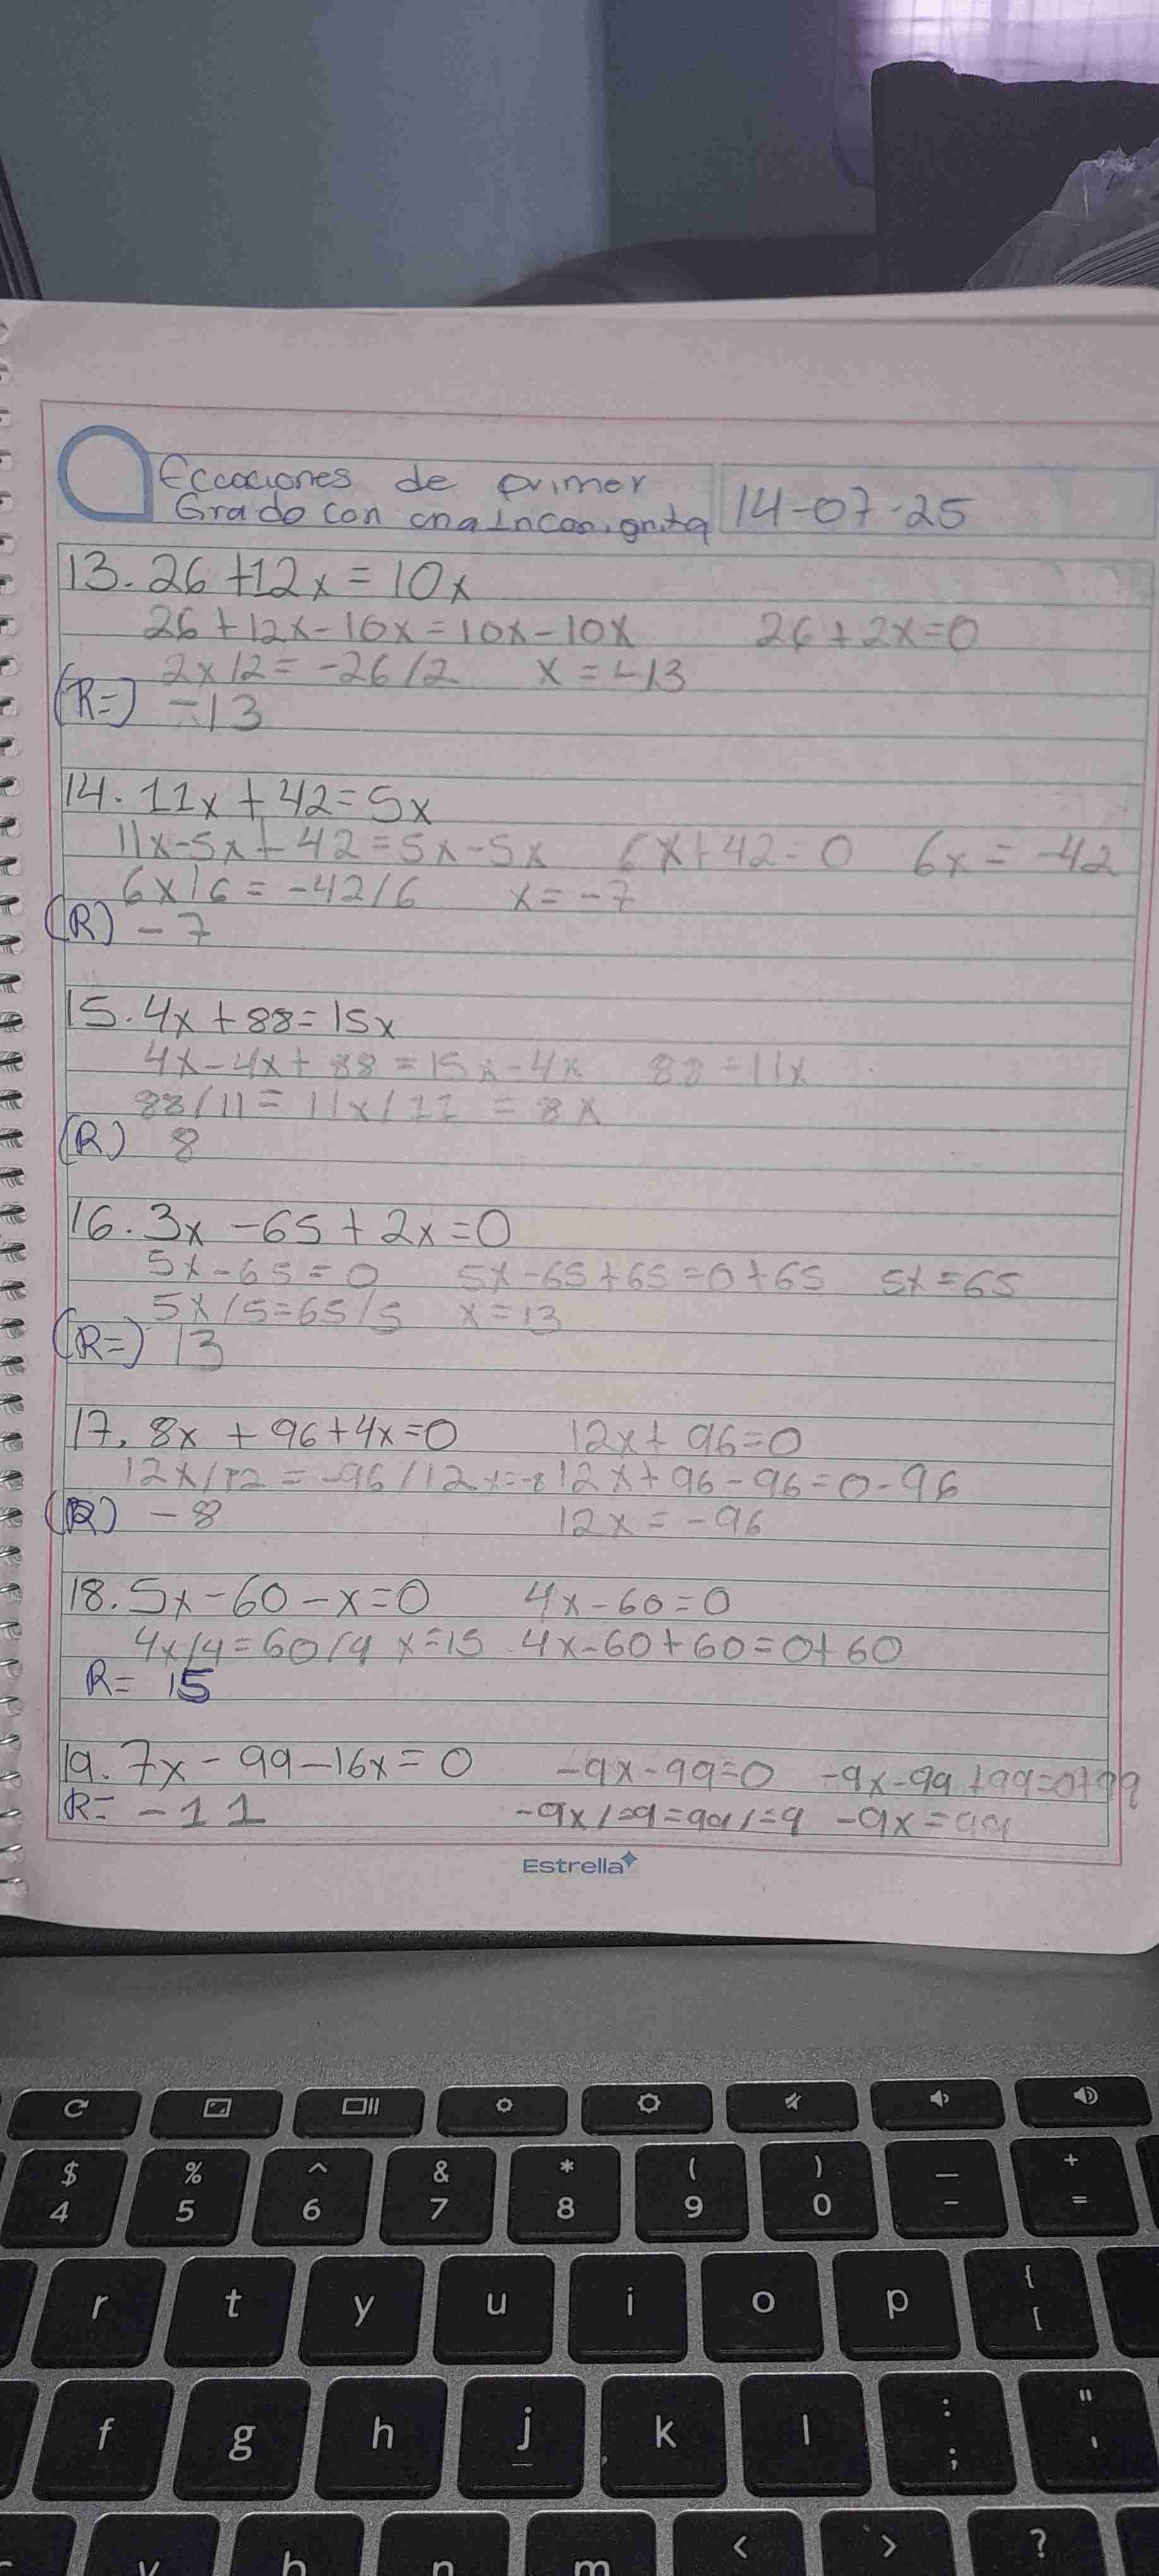 Eccaciones de primer
Grado con una Inconignita
14-07-25
13. 26 + 12x = 10x
26 + 12x - 10x = 10x - 10x 26 + 2x = 0
2x/2 = -26/2 x = -13
(R=) -13
14. 11x + 42 = 5x
11x - 5x + 42 = 5x - 5x 6x + 42 = 0 6x = -42
6x/6 = -42/6 x = -7
(R) -7
15. 4x + 88 = 15x
4x - 4x + 88 = 15x - 4x 88 = 11x
88/11 = 11x/11 = 8x
(R) 8
16. 3x - 65 + 2x = 0
5x - 65 = 0 5x - 65 + 65 = 0 + 65 5x = 65
5x/5 = 65/5 x = 13
(R=) 13
17. 8x + 96 + 4x = 0 12x + 96 = 0
12x/12 = -96/12 x = -8 12x + 96 - 96 = 0 - 96
(R) -8 12x = -96
18. 5x - 60 - x = 0 4x - 60 = 0
4x/4 = 60/4 x = 15 4x - 60 + 60 = 0 + 60
R = 15
19. 7x - 99 - 16x = 0 -9x - 99 = 0 -9x - 99 + 99 = 0 + 99
R = -11 -9x/-9 = 99/-9 -9x = 99
Estrella
$ % ^ & * ( ) — +
4 5 6 7 8 9 0 - =
r t y u i o p { [
f g h j k l : ; " '
v b n m < > ?